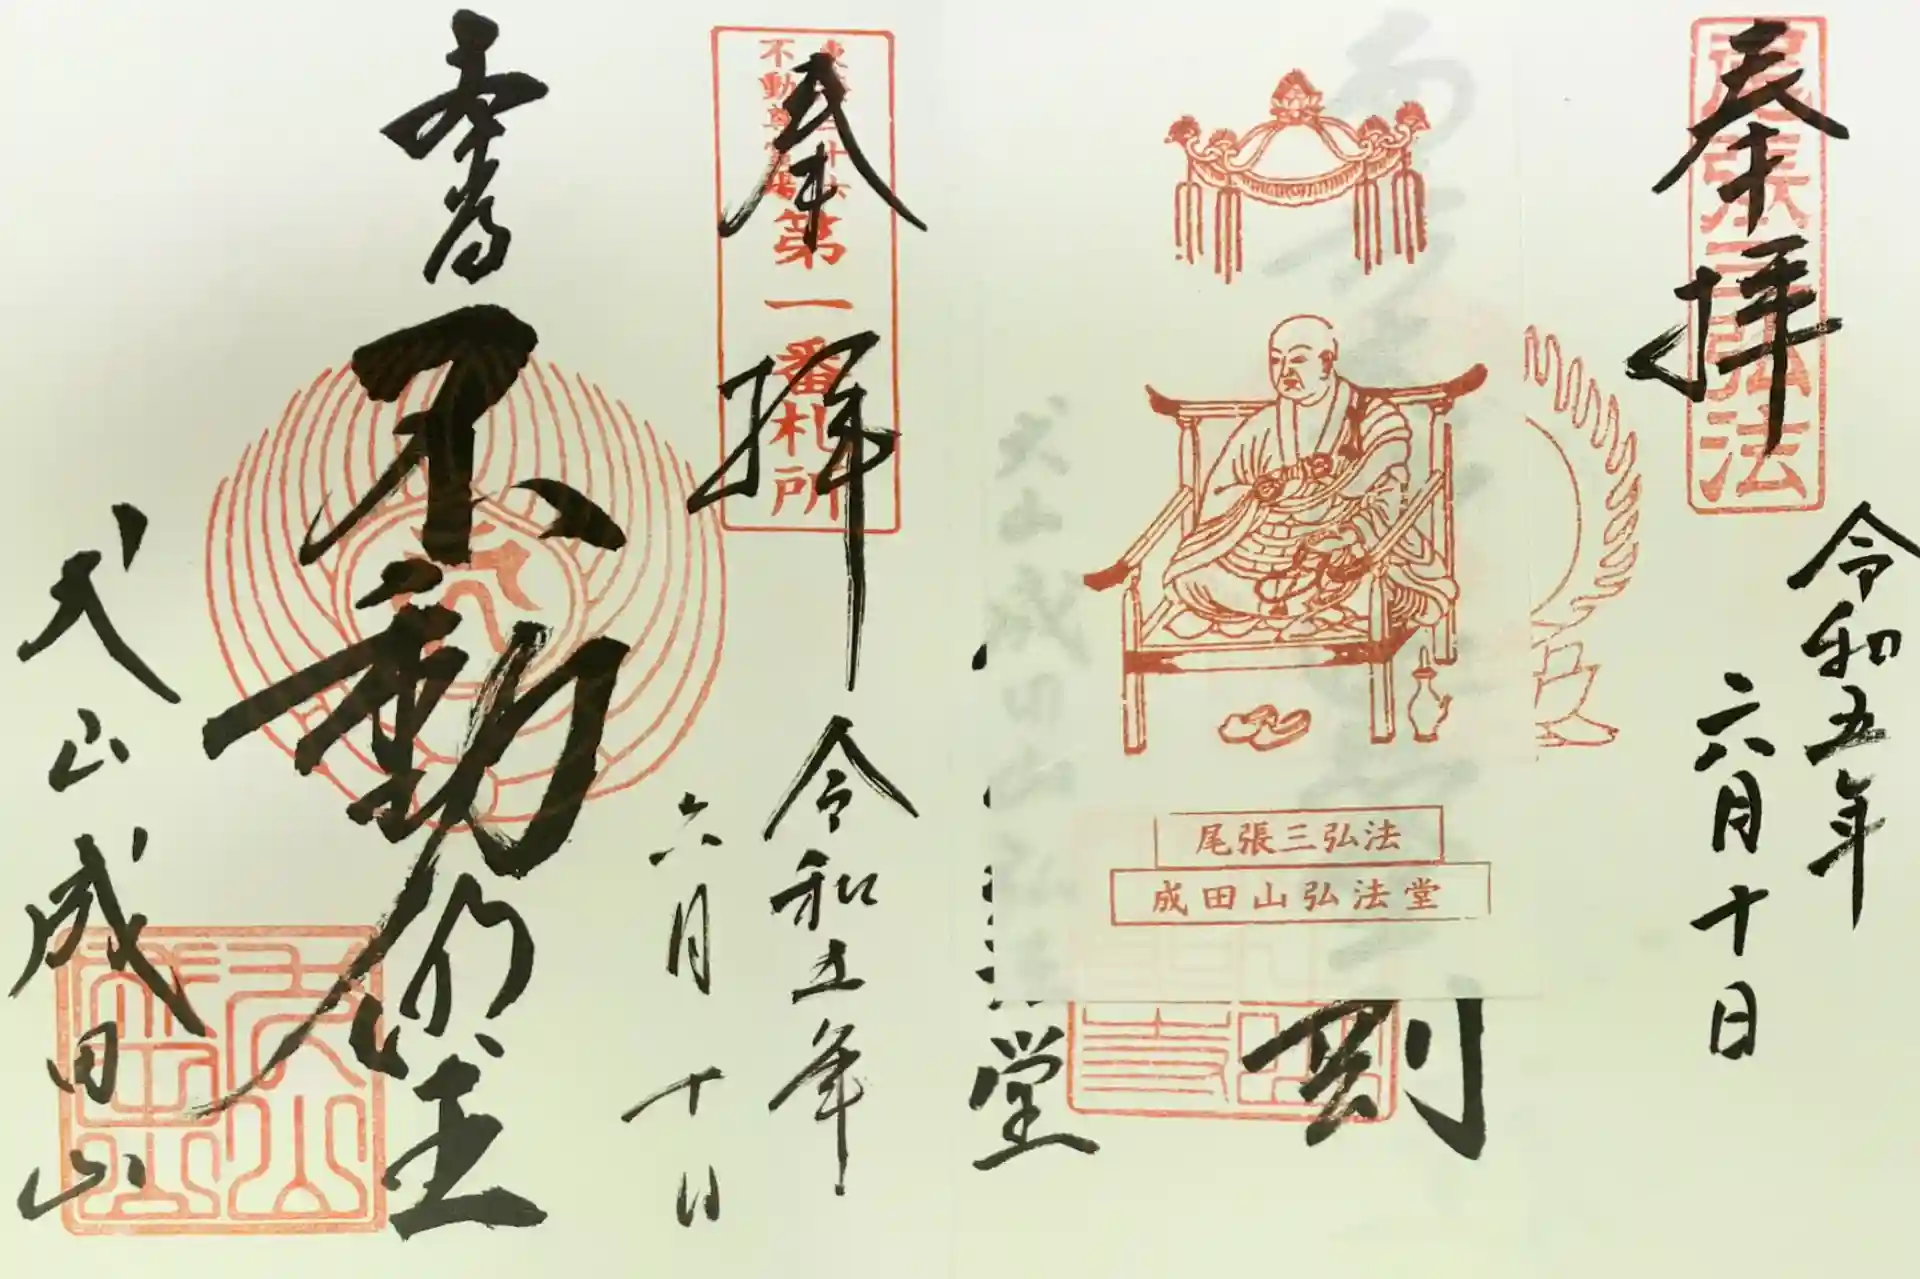 奉拝
尾張三弘法
令和五年
六月十日
剛
尾張三弘法
成田山弘法堂
犬山成田山弘法堂
奉拝
不動尊霊場
第一番札所
令和五年
六月十日
不動明王
犬山成田山